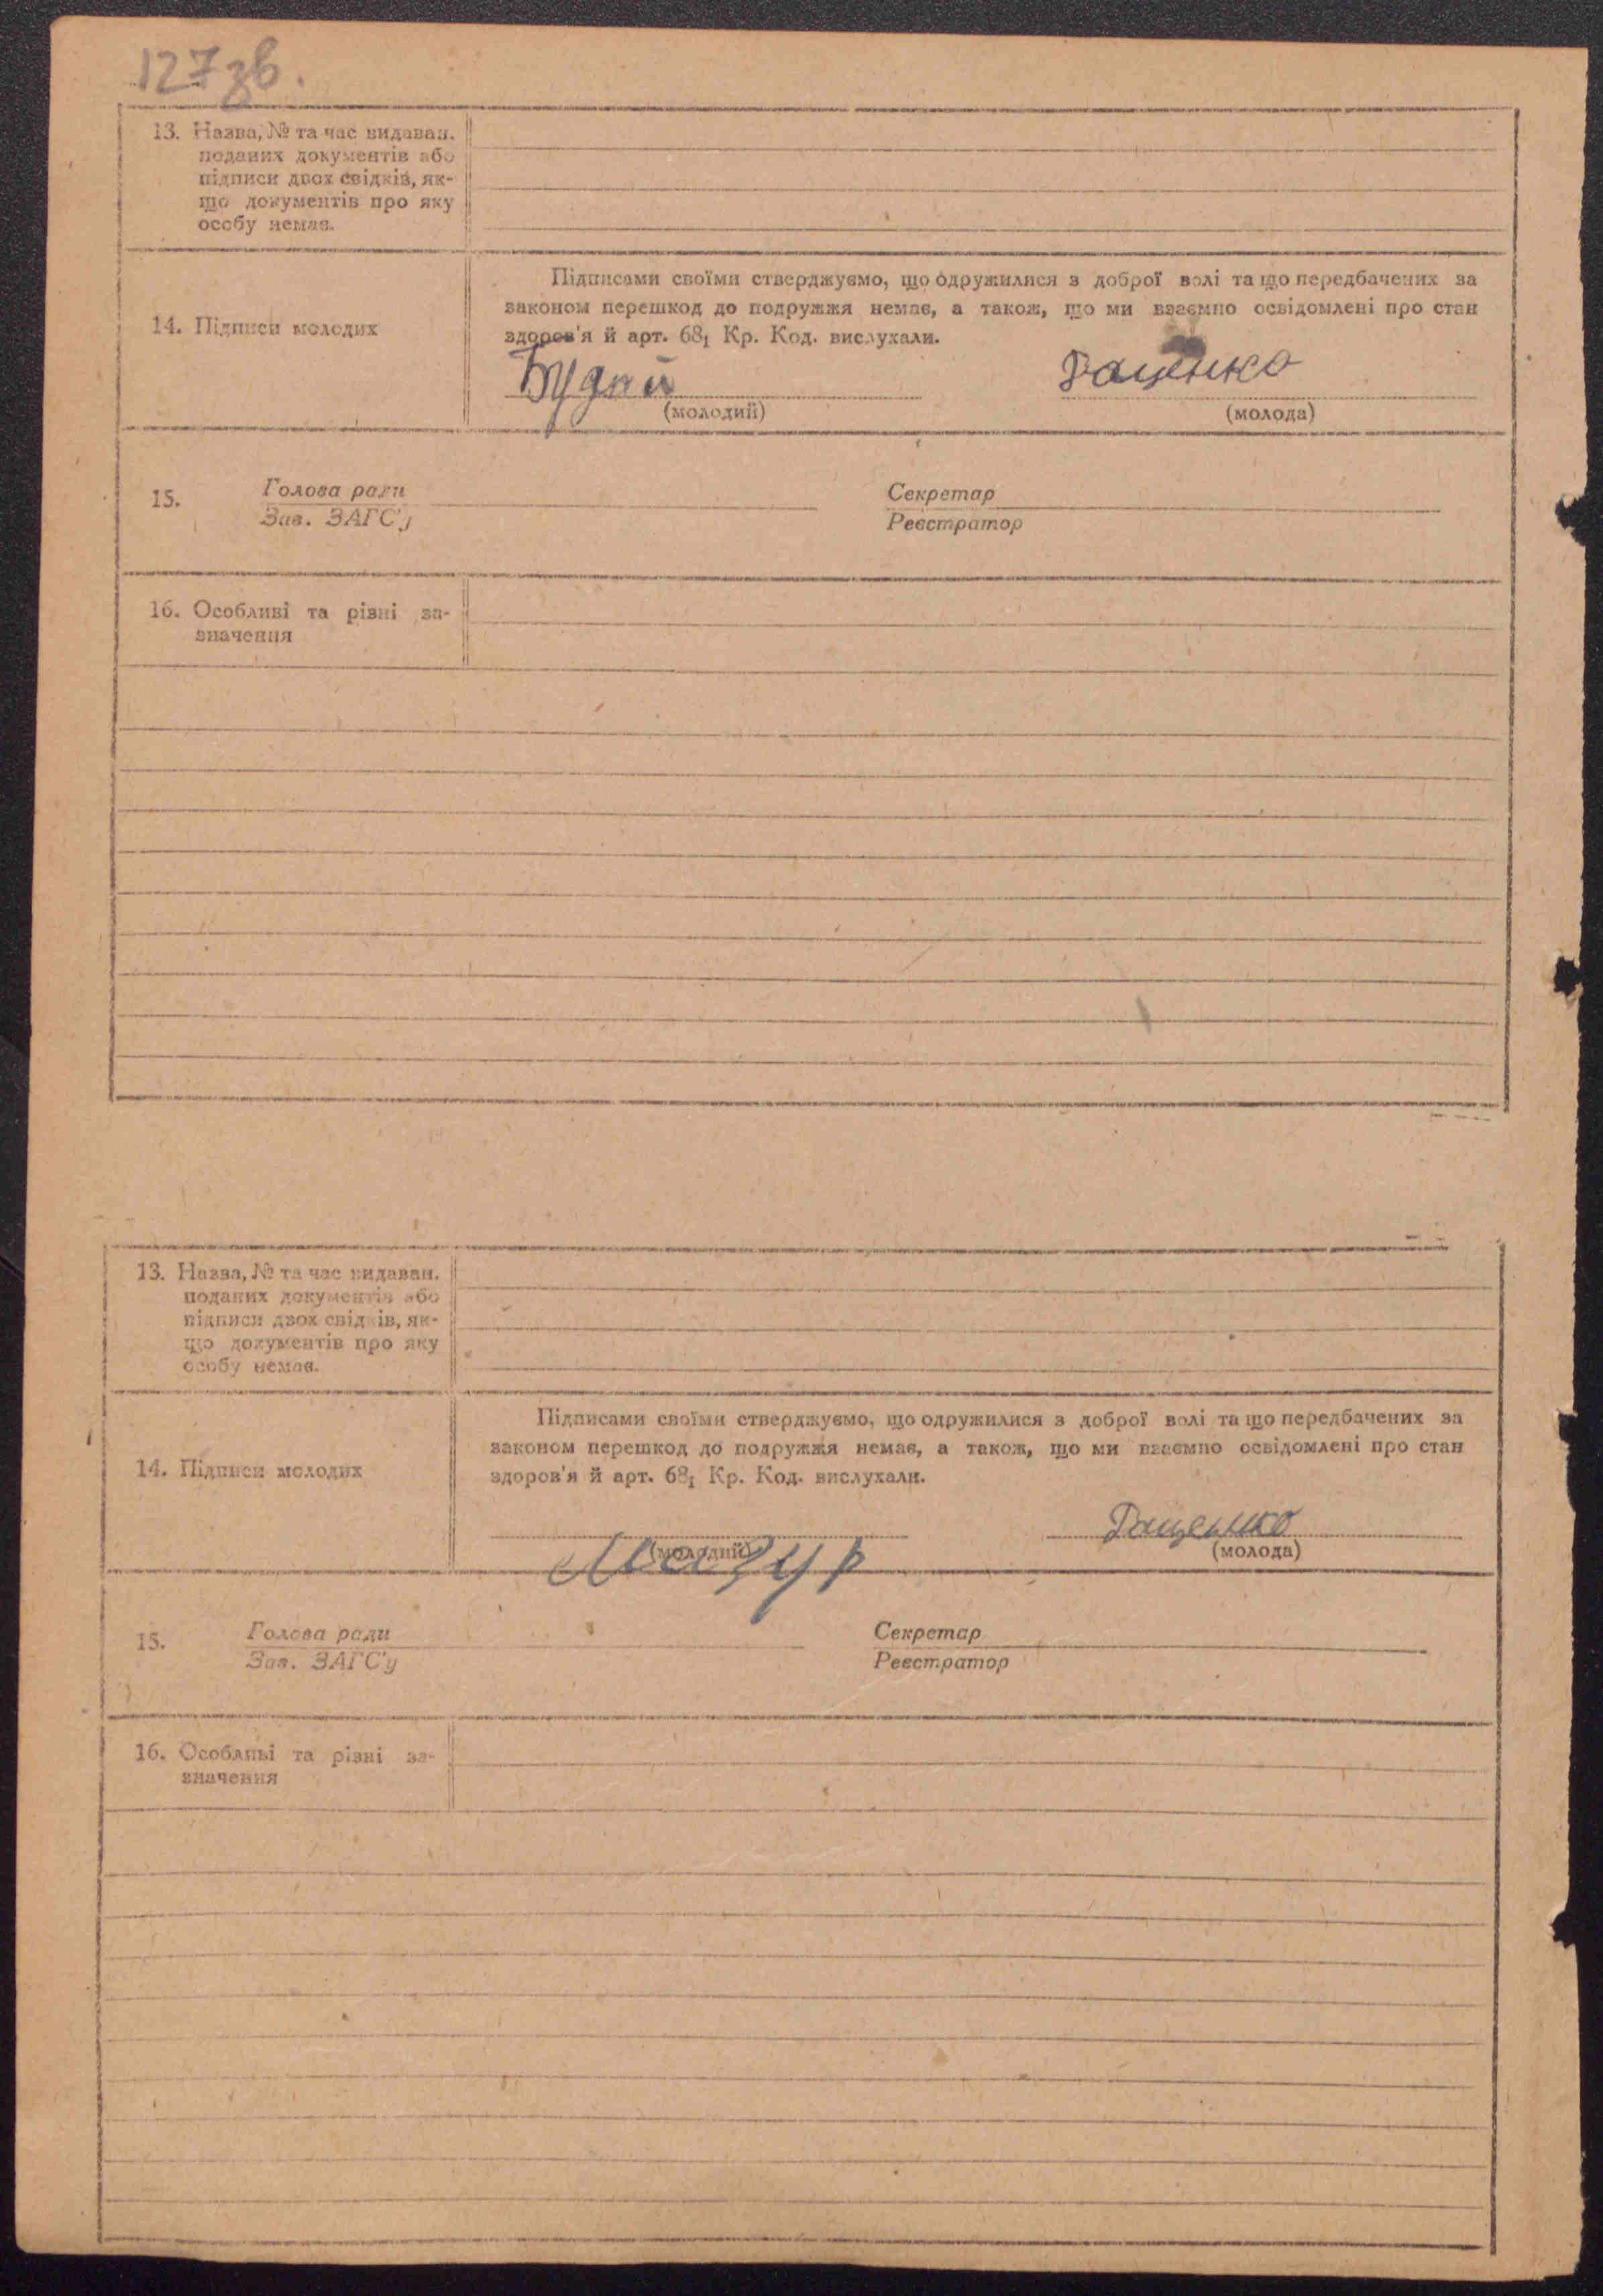 127зв.
13. Назва, № та час видаван.
поданих документів або
підписи двох свідків, як-
що документів про яку
особу немає.
Підписами своїми стверджуємо, що одружилися з доброї волі та що передбачених за
законом перешкод до подружжя немає, а також, що ми взаємно освідомлені про стан
здоров'я й арт. 68₁ Кр. Код. вислухали.
14. Підписи молодих
Будній
(молодий)
(молода)
15.
Голова ради
Зав. ЗАГС'у
Секретар
Реєстратор
16. Особливі та різні за-
значення
13. Назва, № та час видаван.
поданих документів або
підписи двох свідків, як-
що документів про яку
особу немає.
Підписами своїми стверджуємо, що одружилися з доброї волі та що передбачених за
законом перешкод до подружжя немає, а також, що ми взаємно освідомлені про стан
здоров'я й арт. 68₁ Кр. Код. вислухали.
14. Підписи молодих
Мазур
(молодий)
(молода)
15.
Голова ради
Зав. ЗАГС'у
Секретар
Реєстратор
16. Особливі та різні за-
значення